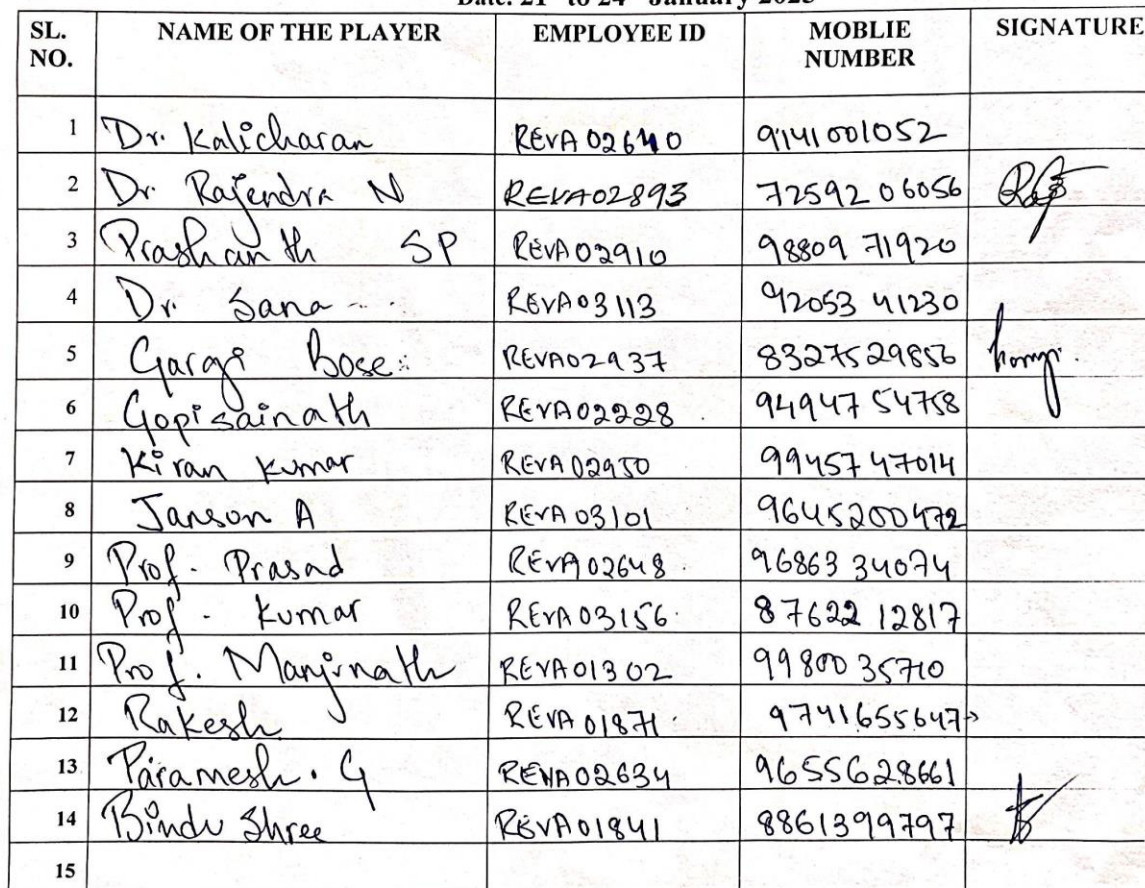 Date: 21 to 24 January 2025
SL. NO. NAME OF THE PLAYER EMPLOYEE ID MOBLIE NUMBER SIGNATURE
1 Dr. Kalicharan REVA02640 9141001052
2 Dr. Rajendra N REVA02893 72592 06056
3 Prashanth SP REVA02910 98809 71920
4 Dr. Sana REVA03113 92053 41230
5 Gargi Bose REVA02937 8327529856
6 Gopisainath REVA02228 94947 54758
7 Kiran kumar REVA02950 99457 47014
8 Janson A REVA03101 9645200472
9 Prof. Prasad REVA02648 96863 34074
10 Prof. kumar REVA03156 87622 12817
11 Prof. Manjunath REVA01302 99800 35710
12 Rakesh REVA01871 9741655647
13 Paramesh. G REVA02634 9655628661
14 Bindu Shree REVA01841 8861399797
15